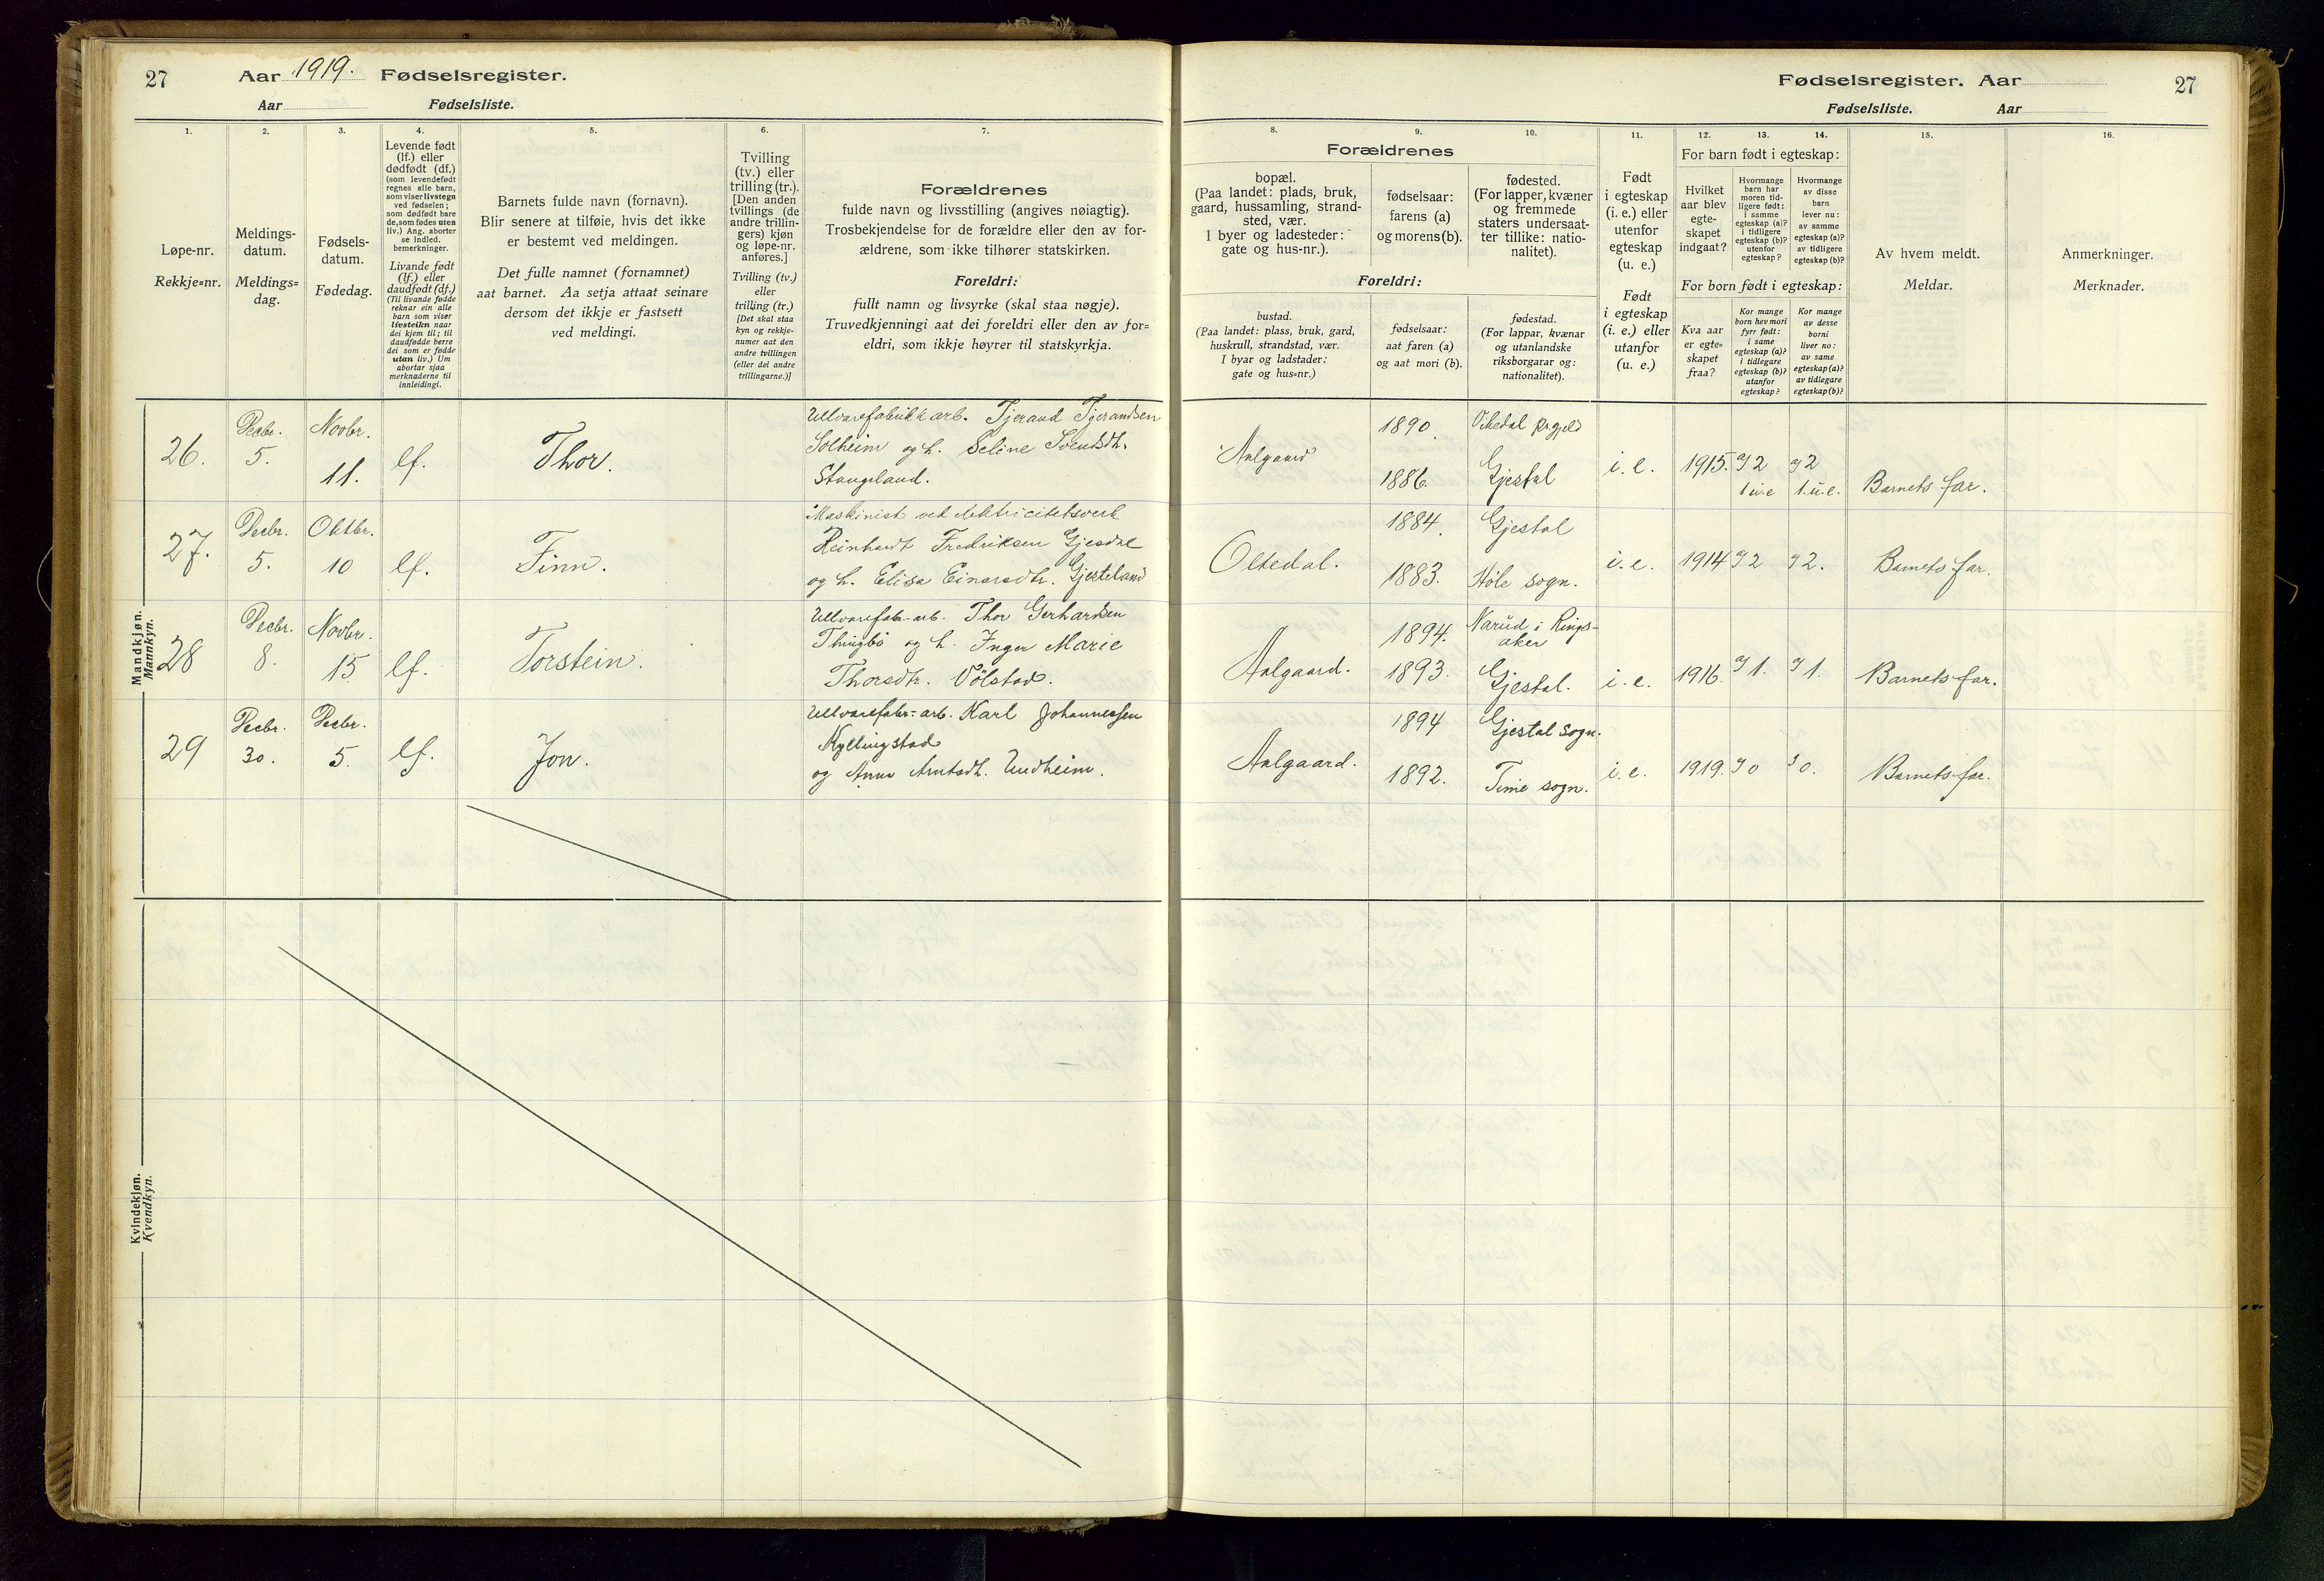 27
Aar 1919. Fødselsregister.
Aar Fødselsliste.
1.
2.
3.
4.
5.
6.
7.
Løpe-nr.
Rekkje=nr.
Meldings-
datum.
Meldings=
dag.
Fødsels-
datum.
Fødedag.
Levende født
(lf.) eller
dødfødt (df.)
(som levendefødt
regnes alle barn,
som viser livstegn
ved fødselen;
som dødfødt bare
de, som fødes uten
liv.) Ang. aborter
se indled.
bemerkninger.
Livande født
(lf.) eller
daudfødt (df.)
(Til livande fødde
reknar ein alle
barn som viser
livsteikn naar
dei kjem til; til
daudfødde berre
dei som er fødde
utan liv.) Um
abortar sjaa
merknaderne til
innleidingi.
Barnets fulde navn (fornavn).
Blir senere at tilføie, hvis det ikke
er bestemt ved meldingen.
Det fulle namnet (fornamnet)
aat barnet. Aa setja attaat seinare
dersom det ikkje er fastsett
ved meldingi.
Tvilling
(tv.) eller
trilling (tr.).
[Den anden
tvillings (de
andre trillin-
gers) kjøn
og løpe-nr.
anføres.]
Tvilling (tv.)
eller
trilling (tr.)
[Det skal staa
kyn og rekkje-
numer aat den
andre tvillingen
(eller dei andre
trillingarne.)]
Forældrenes
fulde navn og livsstilling (angives nøiagtig).
Trosbekjendelse for de forældre eller den av for-
ældrene, som ikke tilhører statskirken.
Foreldri:
fullt namn og livsyrke (skal staa nøgje).
Truvedkjenningi aat dei foreldri eller den av for=
eldri, som ikkje høyrer til statskyrkja.
Mandkjøn.
Mannkyn.
26.
Decbr.
5.
Novbr.
11.
lf.
Thor.
Uldvarefabrikk arb. Tjerand Tjerandsen
Solheim og h. Seline Svendsdtr.
Stangeland.
27.
Decbr.
5.
Oktbr.
10
lf.
Finn.
Maskinist ved elektricitetsverk
Reinhardt Fredriksen Gjesdal
og h. Elisa Einarsdtr. Gjesteland
28
Decbr.
8.
Novbr.
15
lf.
Torstein.
Uldvarefabr-arb. Thor Gerhardsen
Thingbö og h. Inger Marie
Thorsdtr. Võlstad.
29
Decbr.
30.
Decbr.
5.
lf.
Jon.
Uldvarefabr-arb. Karl Johannessen
Kyllingstad
og Anna Arntsdtr. Undheim.
Kvindekjøn.
Kvendkyn.
Fødselsregister. Aar
27
Fødselsliste. Aar
8.
9.
10.
11.
12.
13.
14.
15.
16.
Forældrenes
bopæl.
(Paa landet: plads, bruk,
gaard, hussamling, strand-
sted, vær.
I byer og ladesteder:
gate og hus-nr.).
fødselsaar:
farens (a)
og morens (b).
fødested.
(For lapper, kvæner
og fremmede
staters undersaat-
ter tillike: natio-
nalitet).
Foreldri:
bustad.
(Paa landet: plass, bruk, gard,
huskrull, strandstad, vær.
I byar og ladstader:
gate og hus=nr.)
fødselsaar:
aat faren (a)
og aat mori (b).
fødestad.
(For lappar, kvænar
og utanlandske
riksborgarar og:
nationalitet).
Født
i egteskap
(i. e.) eller
utenfor
egteskap
(u. e.)
Født
i egteskap
(i. e.) eller
utanfor
(u. e.)
For barn født i egteskap:
Hvilket
aar blev
egte-
skapet
indgaat?
Hvormange
barn har
moren tid-
ligere født:
i samme
egteskap (a)?
i tidligere
egteskap (b)?
utenfor
egteskap?
Hvormange
av disse
barn
lever nu:
av samme
egteskap (a)?
av tidligere
egteskap (b)?
For born født i egteskap:
Kva aar
er egte=
skapet
fraa?
Kor mange
born hev mori
fyrr født:
i same
egteskap (a)?
i tidlegare
egteskap (b)?
utanfor
egteskap?
Kor mange
av desse
borni
liver no:
av same
egteskap (a)?
av tidlegare
egteskap (b)?
Av hvem meldt.
Meldar.
Anmerkninger.
Merknader.
Aalgaard
1890.
1886.
Vikedal prgjeld
Gjestal
i. e.
1915.
2
1 u.e
2
1. u. e.
Barnets far.
Oltedal.
1884.
1883.
Gjestal
Høle sogn.
i. e.
1914
2
2.
Barnets far.
Aalgaard.
1894.
1893.
Narud i Rings-
aker
Gjestal.
i. e.
1916.
1.
1.
Barnets far.
Aalgaard.
1894
1892.
Gjestal sogn.
Time sogn.
i. e.
1919.
0
0.
Barnets far.